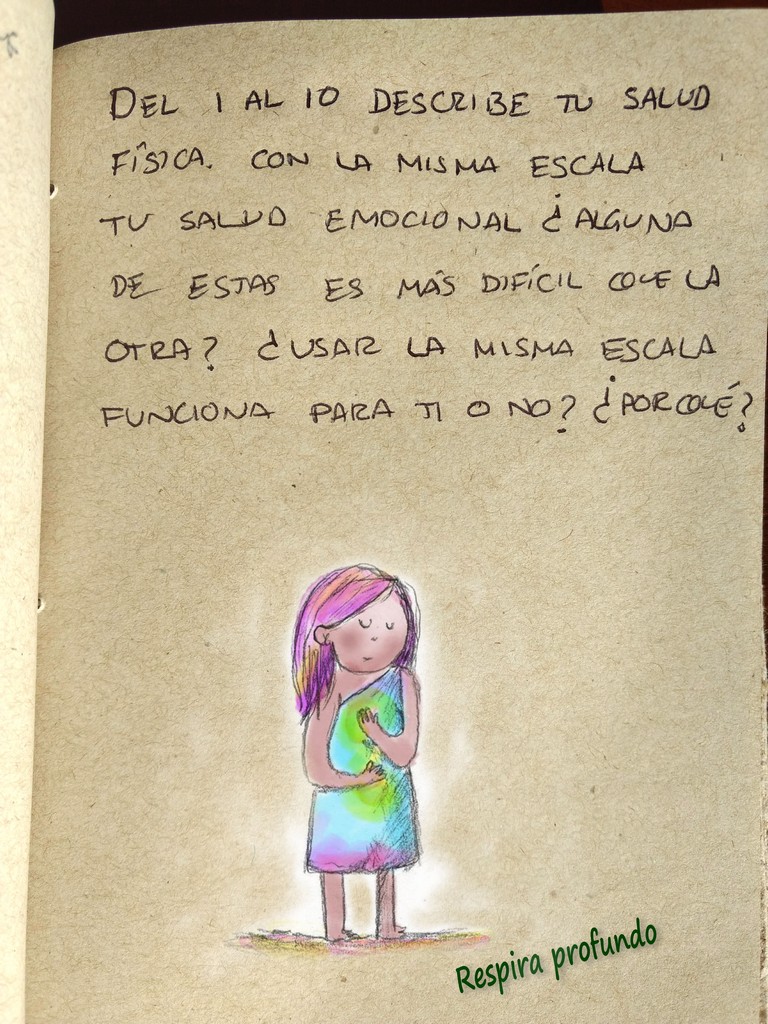 DEL 1 AL 10 DESCRIBE TU SALUD
FÍSICA. CON LA MISMA ESCALA
TU SALUD EMOCIONAL ¿ALGUNA
DE ESTAS ES MÁS DIFÍCIL QUE LA
OTRA? ¿USAR LA MISMA ESCALA
FUNCIONA PARA TI O NO? ¿PORQUÉ?
Respira profundo